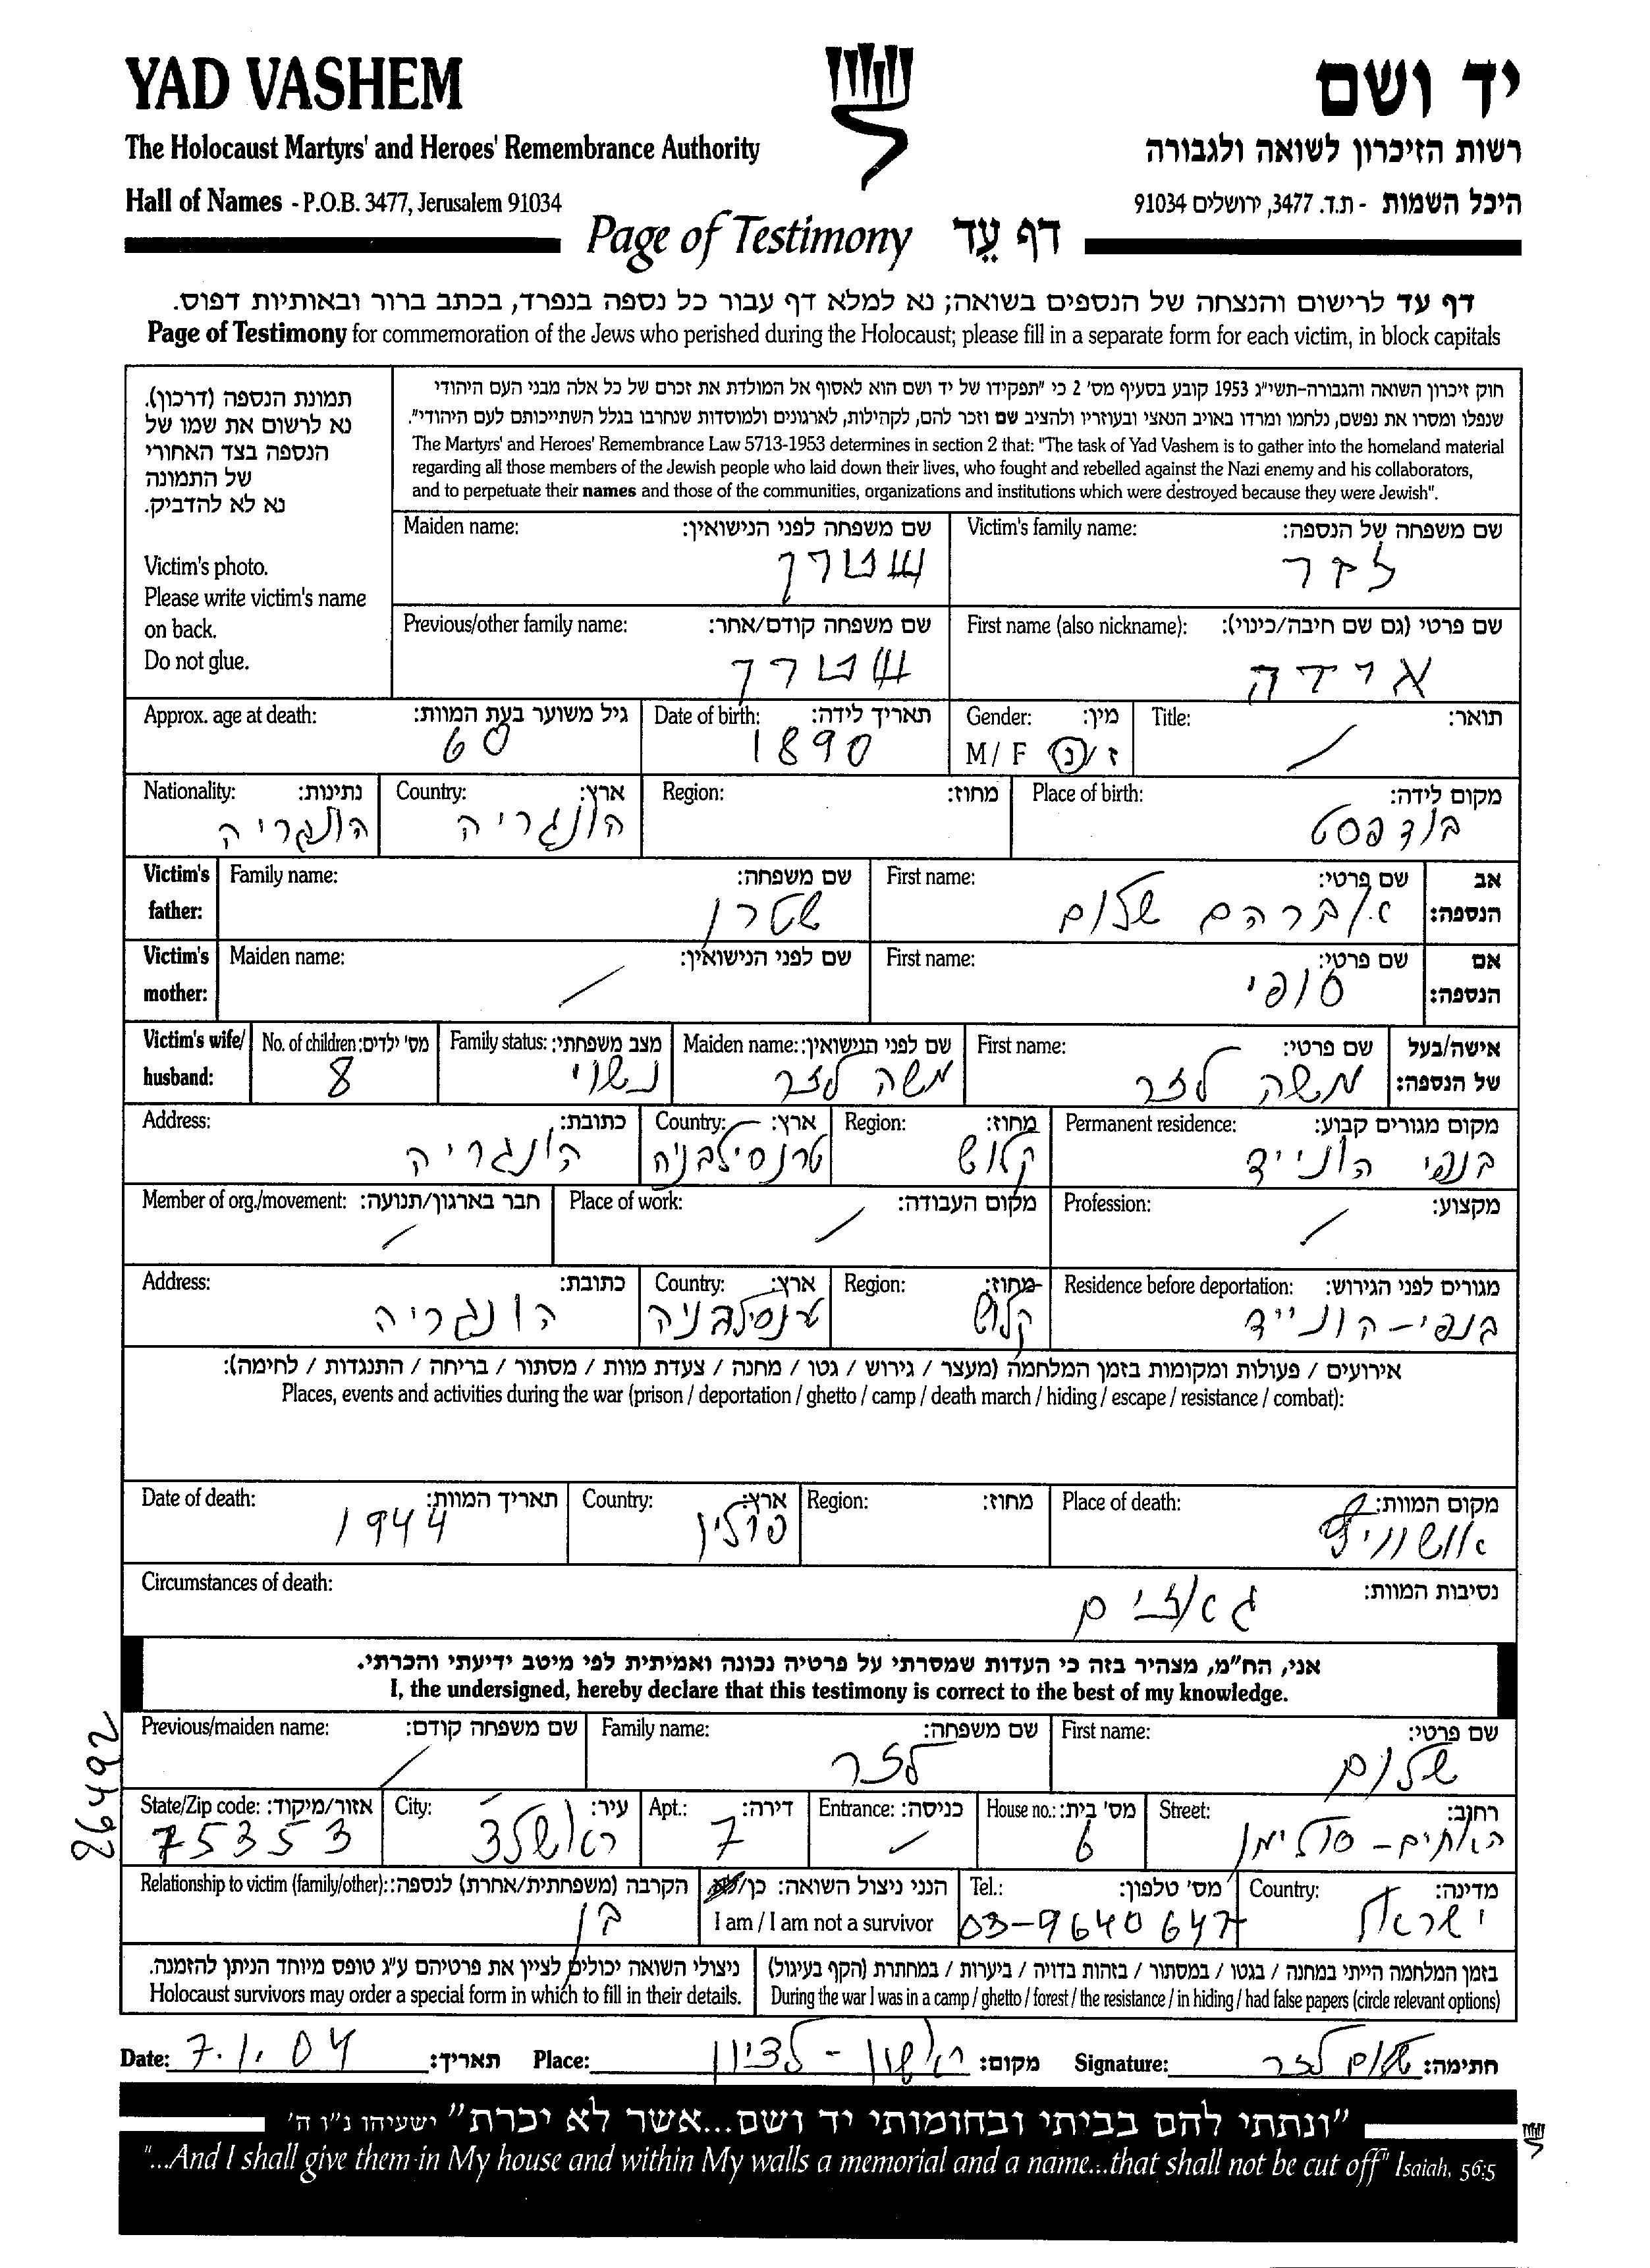 YAD VASHEM
יד ושם
The Holocaust Martyrs' and Heroes' Remembrance Authority
רשות הזיכרון לשואה ולגבורה
Hall of Names - P.O.B. 3477, Jerusalem 91034
היכל השמות - ת.ד. 3477, ירושלים 91034
Page of Testimony דף עֵד
דף עד לרישום והנצחה של הנספים בשואה; נא למלא דף עבור כל נספה בנפרד, בכתב ברור ובאותיות דפוס.
Page of Testimony for commemoration of the Jews who perished during the Holocaust; please fill in a separate form for each victim, in block capitals
תמונת הנספה (דרכון).
נא לרשום את שמו של
הנספה בצד האחורי
של התמונה
נא לא להדביק.
Victim's photo.
Please write victim's name
on back.
Do not glue.
חוק זיכרון השואה והגבורה-תשי"ג 1953 קובע בסעיף מס' 2 כי "תפקידו של יד ושם הוא לאסוף אל המולדת את זכרם של כל אלה מבני העם היהודי
שנפלו ומסרו את נפשם, נלחמו ומרדו באויב הנאצי ובעוזריו ולהציב שם וזכר להם, לקהילות, לארגונים ולמוסדות שנחרבו בגלל השתייכותם לעם היהודי".
The Martyrs' and Heroes' Remembrance Law 5713-1953 determines in section 2 that: "The task of Yad Vashem is to gather into the homeland material
regarding all those members of the Jewish people who laid down their lives, who fought and rebelled against the Nazi enemy and his collaborators,
and to perpetuate their names and those of the communities, organizations and institutions which were destroyed because they were Jewish".
Victim's family name: שם משפחה של הנספה:
לזר
Maiden name: שם משפחה לפני הנישואין:
שטרן
First name (also nickname): שם פרטי (גם שם חיבה/כינוי):
Previous/other family name: שם משפחה קודם/אחר:
שטרן
Title: תואר:
Gender: מין:
M / F ז/נ
Date of birth: תאריך לידה:
1890
Approx. age at death: גיל משוער בעת המוות:
60
Place of birth: מקום לידה:
בודפסט
Region: מחוז:
Country: ארץ:
הונגריה
Nationality: נתינות:
הונגריה
Victim's father: אב הנספה:
First name: שם פרטי:
אברהם שלום
Family name: שם משפחה:
שטרן
Victim's mother: אם הנספה:
First name: שם פרטי:
סופי
Maiden name: שם לפני הנישואין:
Victim's wife/ husband: אישה/בעל של הנספה:
First name: שם פרטי:
משה לזר
Maiden name: שם לפני הנישואין:
משה לזר
Family status: מצב משפחתי:
נשוי
No. of children: מס' ילדים:
8
Permanent residence: מקום מגורים קבוע:
בנפי הונייד
Region: מחוז:
קלוש
Country: ארץ:
טרנסילבניה
Address: כתובת:
הונגריה
Profession: מקצוע:
Place of work: מקום העבודה:
Member of org./movement: חבר בארגון/תנועה:
Residence before deportation: מגורים לפני הגירוש:
בנפי-הונייד
Region: מחוז:
קלוש
Country: ארץ:
טרנסילבניה
Address: כתובת:
הונגריה
אירועים / פעולות ומקומות בזמן המלחמה (מעצר / גירוש / גטו / מחנה / צעדת מוות / מסתור / בריחה / התנגדות / לחימה):
Places, events and activities during the war (prison / deportation / ghetto / camp / death march / hiding / escape / resistance / combat):
Place of death: מקום המוות:
Region: מחוז:
Country: ארץ:
פולין
Date of death: תאריך המוות:
1944
Circumstances of death: נסיבות המוות:
גאזים
אני, הח"מ, מצהיר בזה כי העדות שמסרתי על פרטיה נכונה ואמיתית לפי מיטב ידיעתי והכרתי.
I, the undersigned, hereby declare that this testimony is correct to the best of my knowledge.
First name: שם פרטי:
שלום
Family name: שם משפחה:
לזר
Previous/maiden name: שם משפחה קודם:
26492
Street: רחוב:
האחים-סולימן
House no.: מס' בית:
6
Entrance: כניסה:
Apt.: דירה:
7
City: עיר:
ראשלצ
State/Zip code: אזור/מיקוד:
75353
Country: מדינה:
ישראל
Tel.: מס' טלפון:
03-9640647
הנני ניצול השואה: כן/לא
I am / I am not a survivor
Relationship to victim (family/other): הקרבה (משפחתית/אחרת) לנספה:
בן
בזמן המלחמה הייתי במחנה / בגטו / במסתור / בזהות בדויה / ביערות / במחתרת (הקף בעיגול)
During the war I was in a camp / ghetto / forest / the resistance / in hiding / had false papers (circle relevant options)
ניצולי השואה יכולים לציין את פרטיהם ע"ג טופס מיוחד הניתן להזמנה.
Holocaust survivors may order a special form in which to fill in their details.
Date: 7.1.04 תאריך:
Place: ראשון-לציון מקום:
Signature: שלום לזר חתימה:
"ונתתי להם בביתי ובחומותי יד ושם...אשר לא יכרת" ישעיהו נ"ו ה'
"...And I shall give them in My house and within My walls a memorial and a name...that shall not be cut off" Isaiah, 56:5